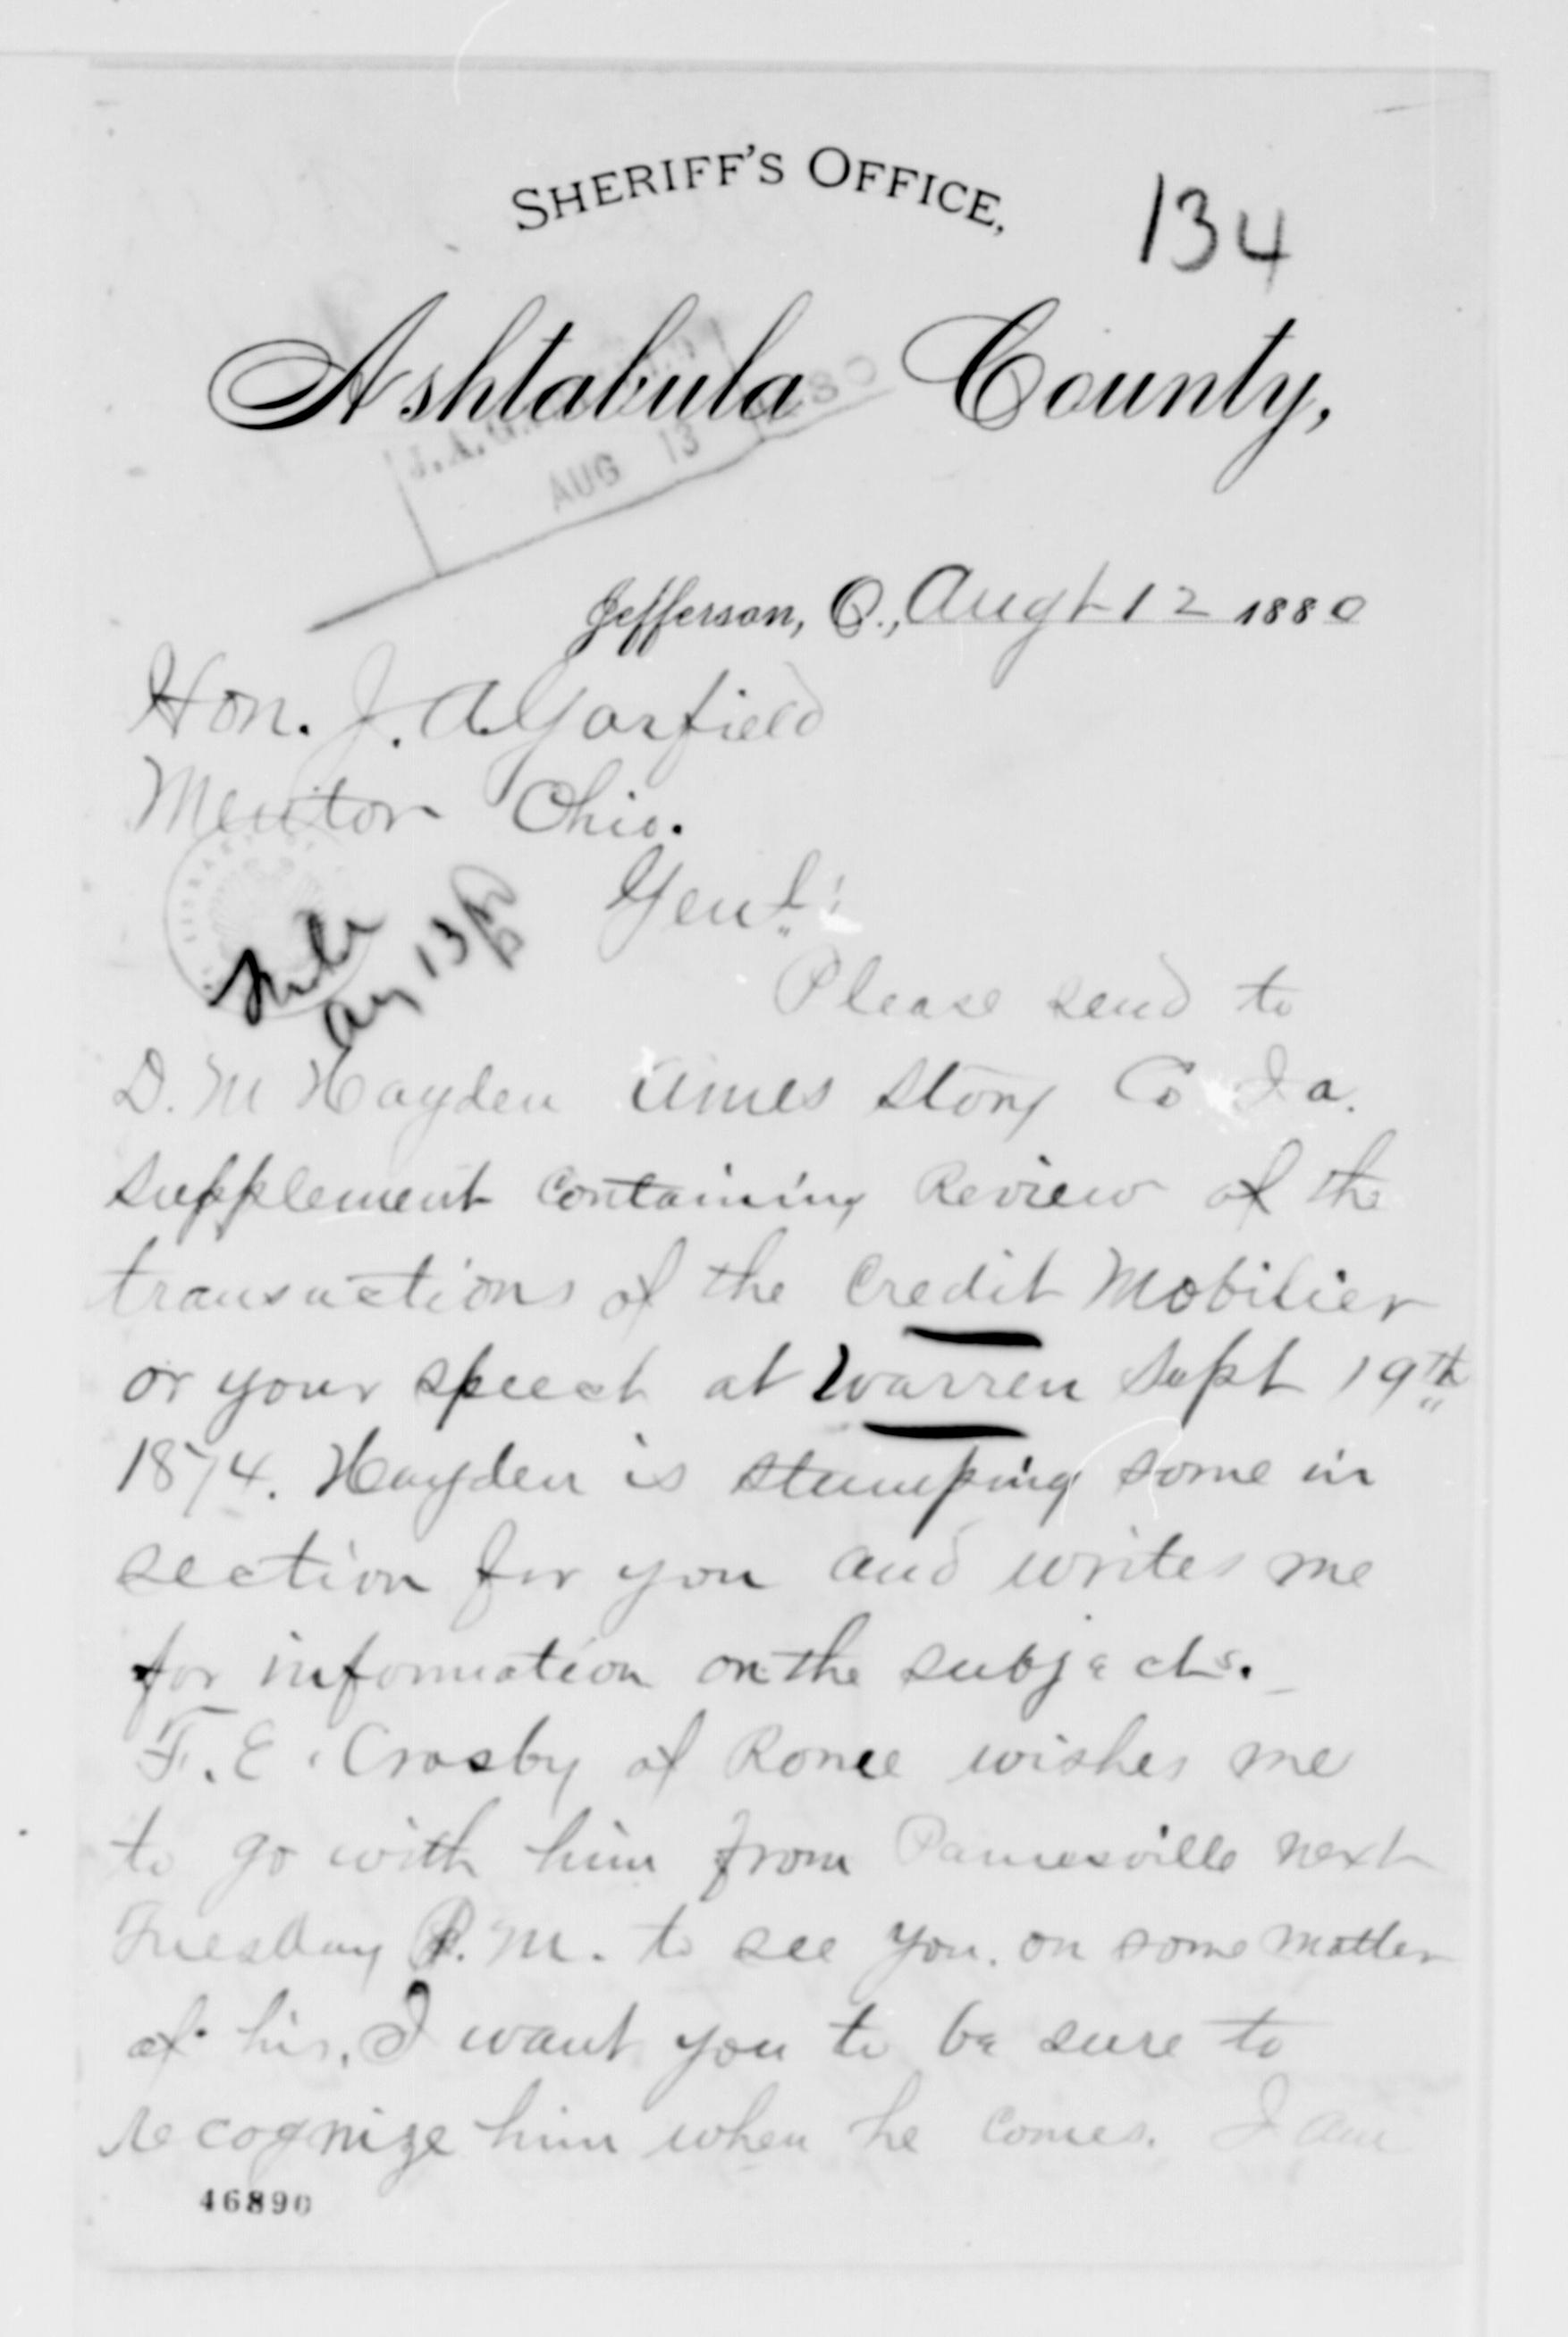 SHERIFF'S OFFICE,
134
Ashtabula County,
J.A.G.
AUG 13 1880
Jefferson, O., Augt 12 1880
Hon. J. A. Garfield
Mentor Ohio.
Genl:
Aug 13
Please send to
D. M Hayden Ames Story Co Ia.
supplement containing Review of the
transactions of the Credit Mobilier
or your speech at Warren Sept 19th
1874. Hayden is stumping some in
section for you and writes me
for information on the subjects.
F. E. Crosby of Rome wishes me
to go with him from Painesville next
Tuesday P.M. to see you. on some matter
of his. I want you to be sure to
recognize him when he comes. I am
46890